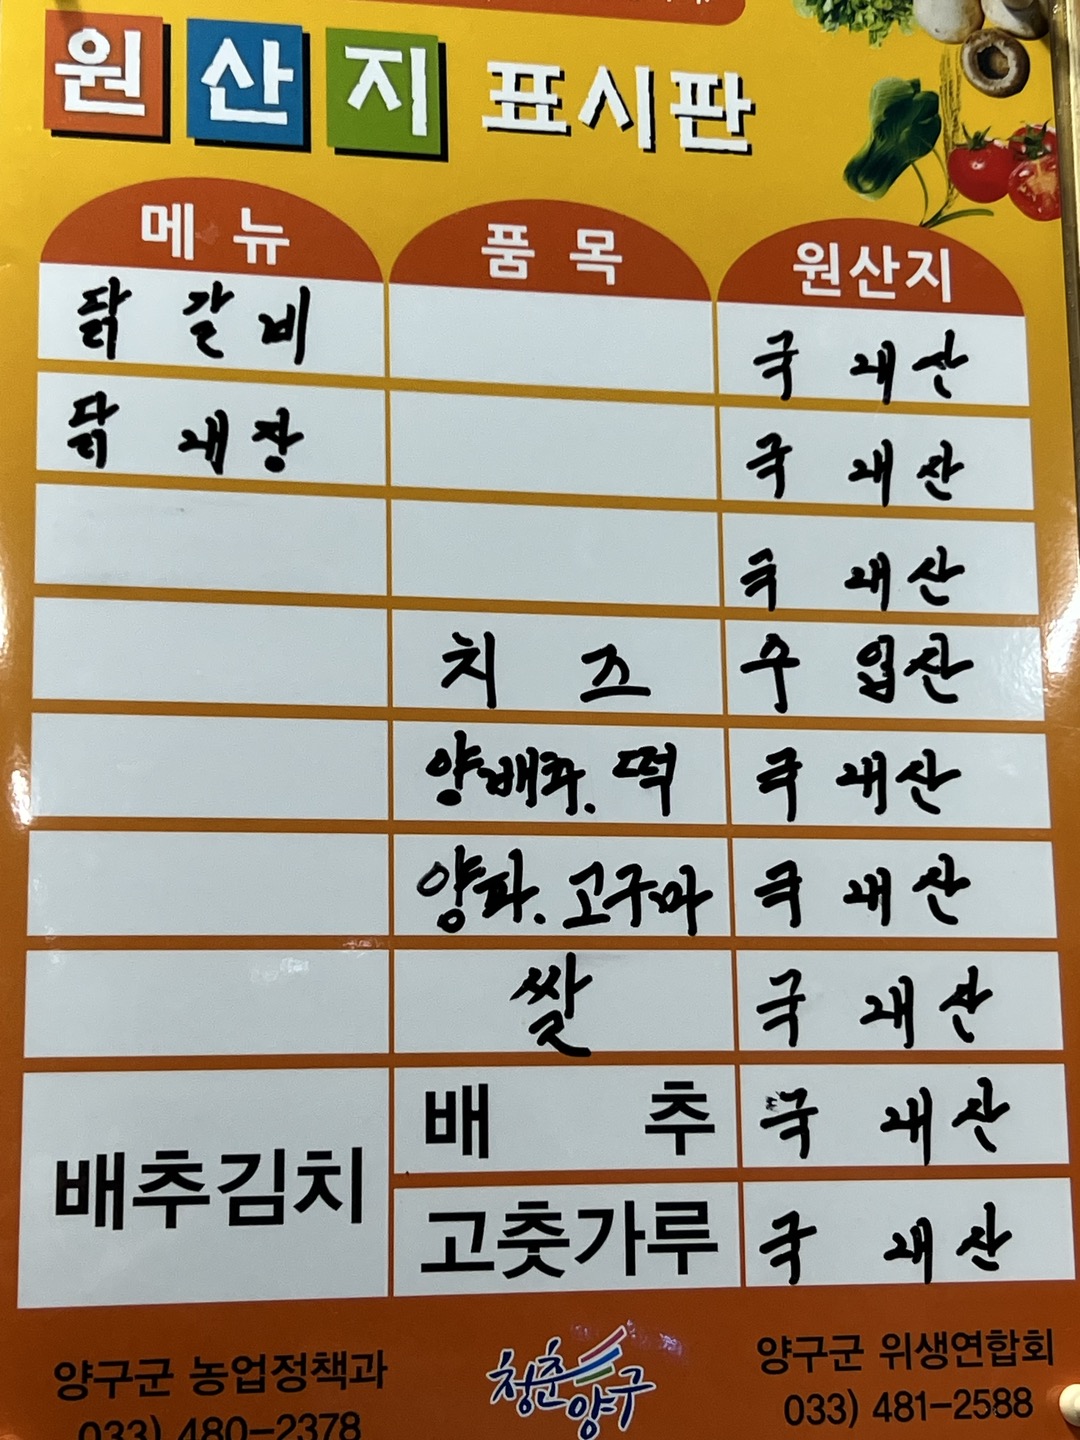 원산지 표시판
메뉴 품목 원산지
닭갈비 국내산
닭내장 국내산
국내산
치즈 수입산
양배추. 떡 국내산
양파. 고구마 국내산
쌀 국내산
배추김치
배추 국내산
고춧가루 국내산
양구군 농업정책과
033) 480-2378
청춘양구
양구군 위생연합회
033) 481-2588